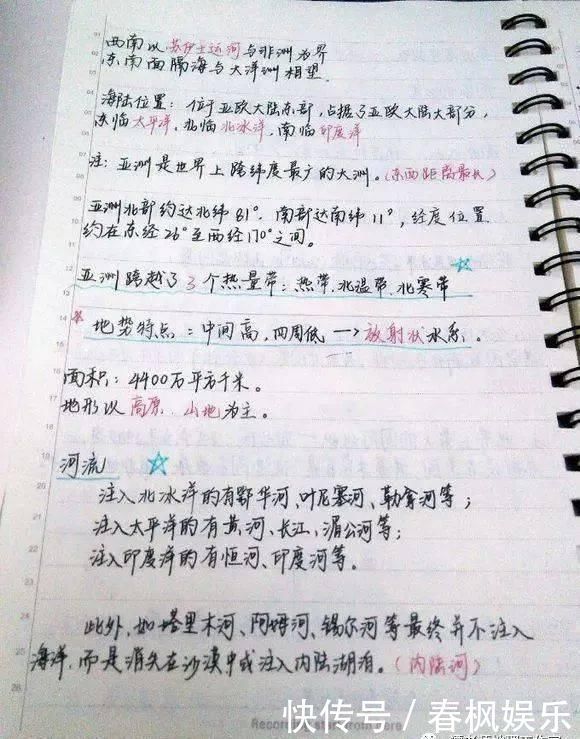 西南以苏伊士运河与非洲为界
东南面隔海与大洋洲相望.
海陆位置：位于亚欧大陆东部，占据了亚欧大陆大部分，
东临太平洋，北临北冰洋，南临印度洋
注：亚洲是世界上跨纬度最广的大洲。(东西距离最长)
亚洲北部约达北纬81°．南部达南纬11°，经度位置
约在东经26°至西经170°之间。
亚洲跨越了3个热量带：热带、北温带、北寒带
* 地势特点：中间高，四周低 → 放射状水系。
面积：4400万平方千米。
地形以高原、山地为主。
河流
注入北冰洋的有鄂毕河、叶尼塞河、勒拿河等；
注入太平洋的有黄河、长江、湄公河等；
注入印度洋的有恒河、印度河等。
此外，如塔里木河、阿姆河、锡尔河等最终并不注入
海洋，而是消失在沙漠中或注入内陆湖泊。(内陆河)
Recording start from here
快传号／春枫娱乐